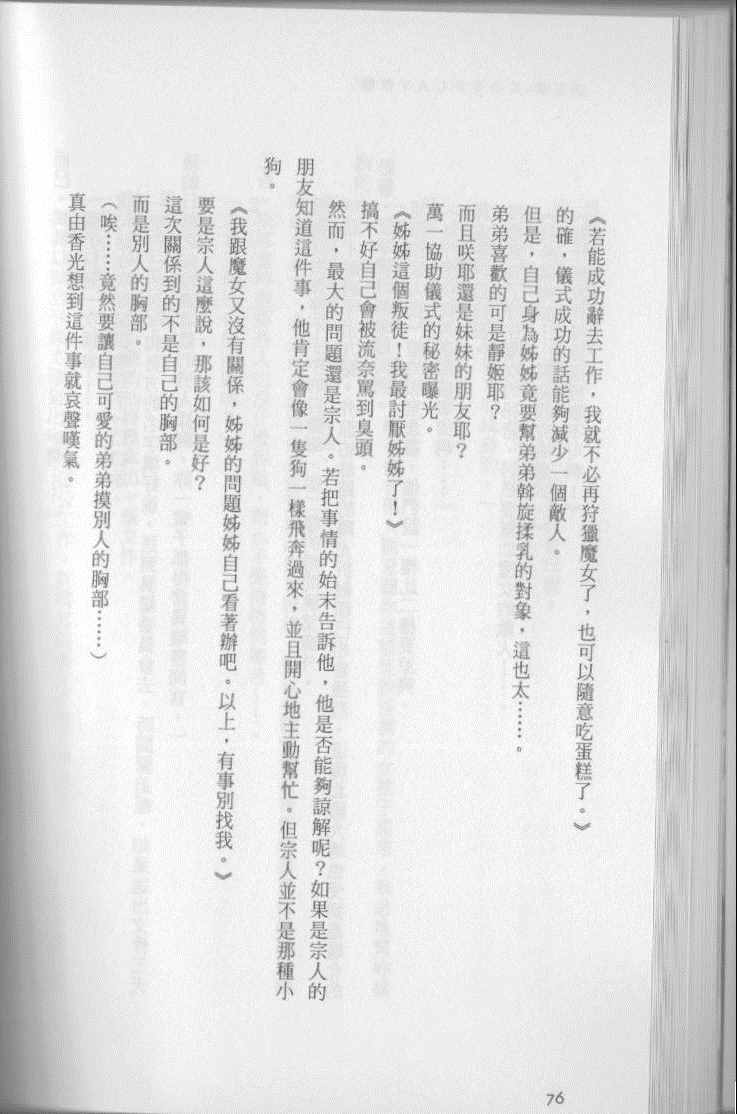 《若能成功辭去工作，我就不必再狩獵魔女了，也可以隨意吃蛋糕了。》
的確，儀式成功的話能夠減少一個敵人。
但是，自己身為姊姊竟要幫弟弟斡旋揉乳的對象，這也太……。
弟弟喜歡的可是靜姬耶？
而且咲耶還是妹妹的朋友耶？
萬一協助儀式的秘密曝光。
《姊姊這個叛徒！我最討厭姊姊了！》
搞不好自己會被流奈罵到臭頭。
然而，最大的問題還是宗人。若把事情的始末告訴他，他是否能夠諒解呢？如果是宗人的
朋友知道這件事，他肯定會像一隻狗一樣飛奔過來，並且開心地主動幫忙。但宗人並不是那種小
狗。
《我跟魔女又沒有關係，姊姊的問題姊姊自己看著辦吧。以上，有事別找我。》
要是宗人這麼說，那該如何是好？
這次關係到的不是自己的胸部。
而是別人的胸部。
（唉……竟然要讓自己可愛的弟弟摸別人的胸部……）
真由香光想到這件事就哀聲嘆氣。
76